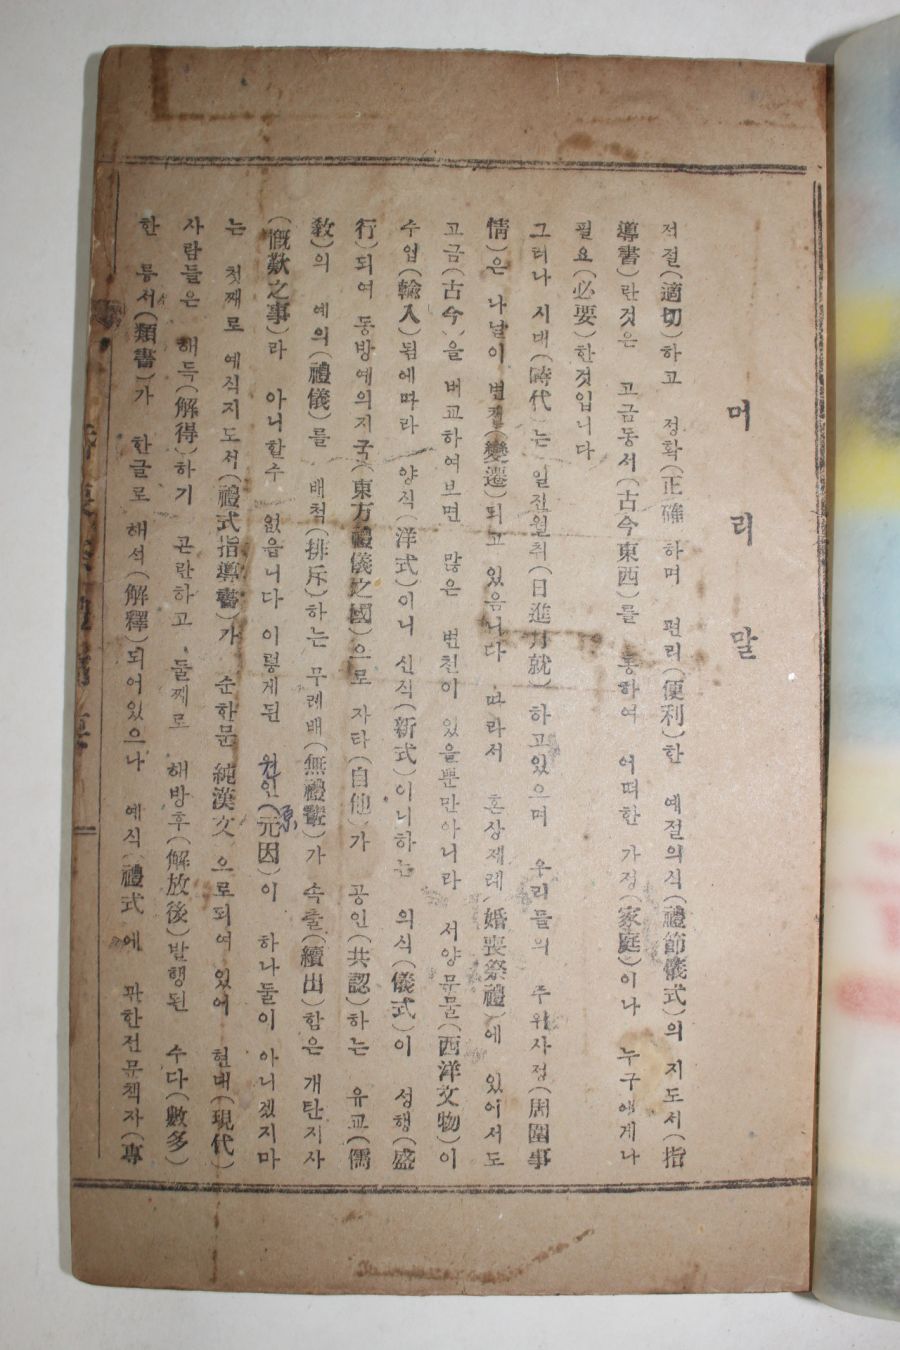 머리말
저절(適切)하고 정확(正確)하며 편리(便利)한 예절의식(禮節儀式)의 지도서(指
導書)란것은 고금동서(古今東西)를 통하여 어떠한 가정(家庭)이나 누구에게나
필요(必要)한것입니다
그러나 시대(時代)는 일진월취(日進月就)하고있으며 우리들의 주위사정(周圍事
情)은 나날이 변천(變遷)되고 있음니다 따라서 혼상제례(婚喪祭禮)에 있어서도
고금(古今)을 비교하여보면 많은 변천이 있을뿐만아니라 서양문물(西洋文物)이
수입(輸入)됨에따라 양식(洋式)이니 신식(新式)이니하는 의식(儀式)이 성행(盛
行)되여 동방예의지국(東方禮儀之國)으로 자타(自他)가 공인(共認)하는 유교(儒
敎)의 예의(禮儀)를 배척(排斥)하는 무례배(無禮輩)가 속출(續出)함은 개탄지사
(慨歎之事)라 아니할수 없읍니다 이렇게된 원인(元因)이 하나둘이 아니겠지마
原
는 첫째로 예식지도서(禮式指導書)가 순한문(純漢文)으로되여 있어 현대(現代)
사람들은 해득(解得)하기 곤란하고 둘째로 해방후(解放後)발행된 수다(數多)
한 유서(類書)가 한글로 해석(解釋)되어있으나 예식(禮式)에 관한전문책자(專